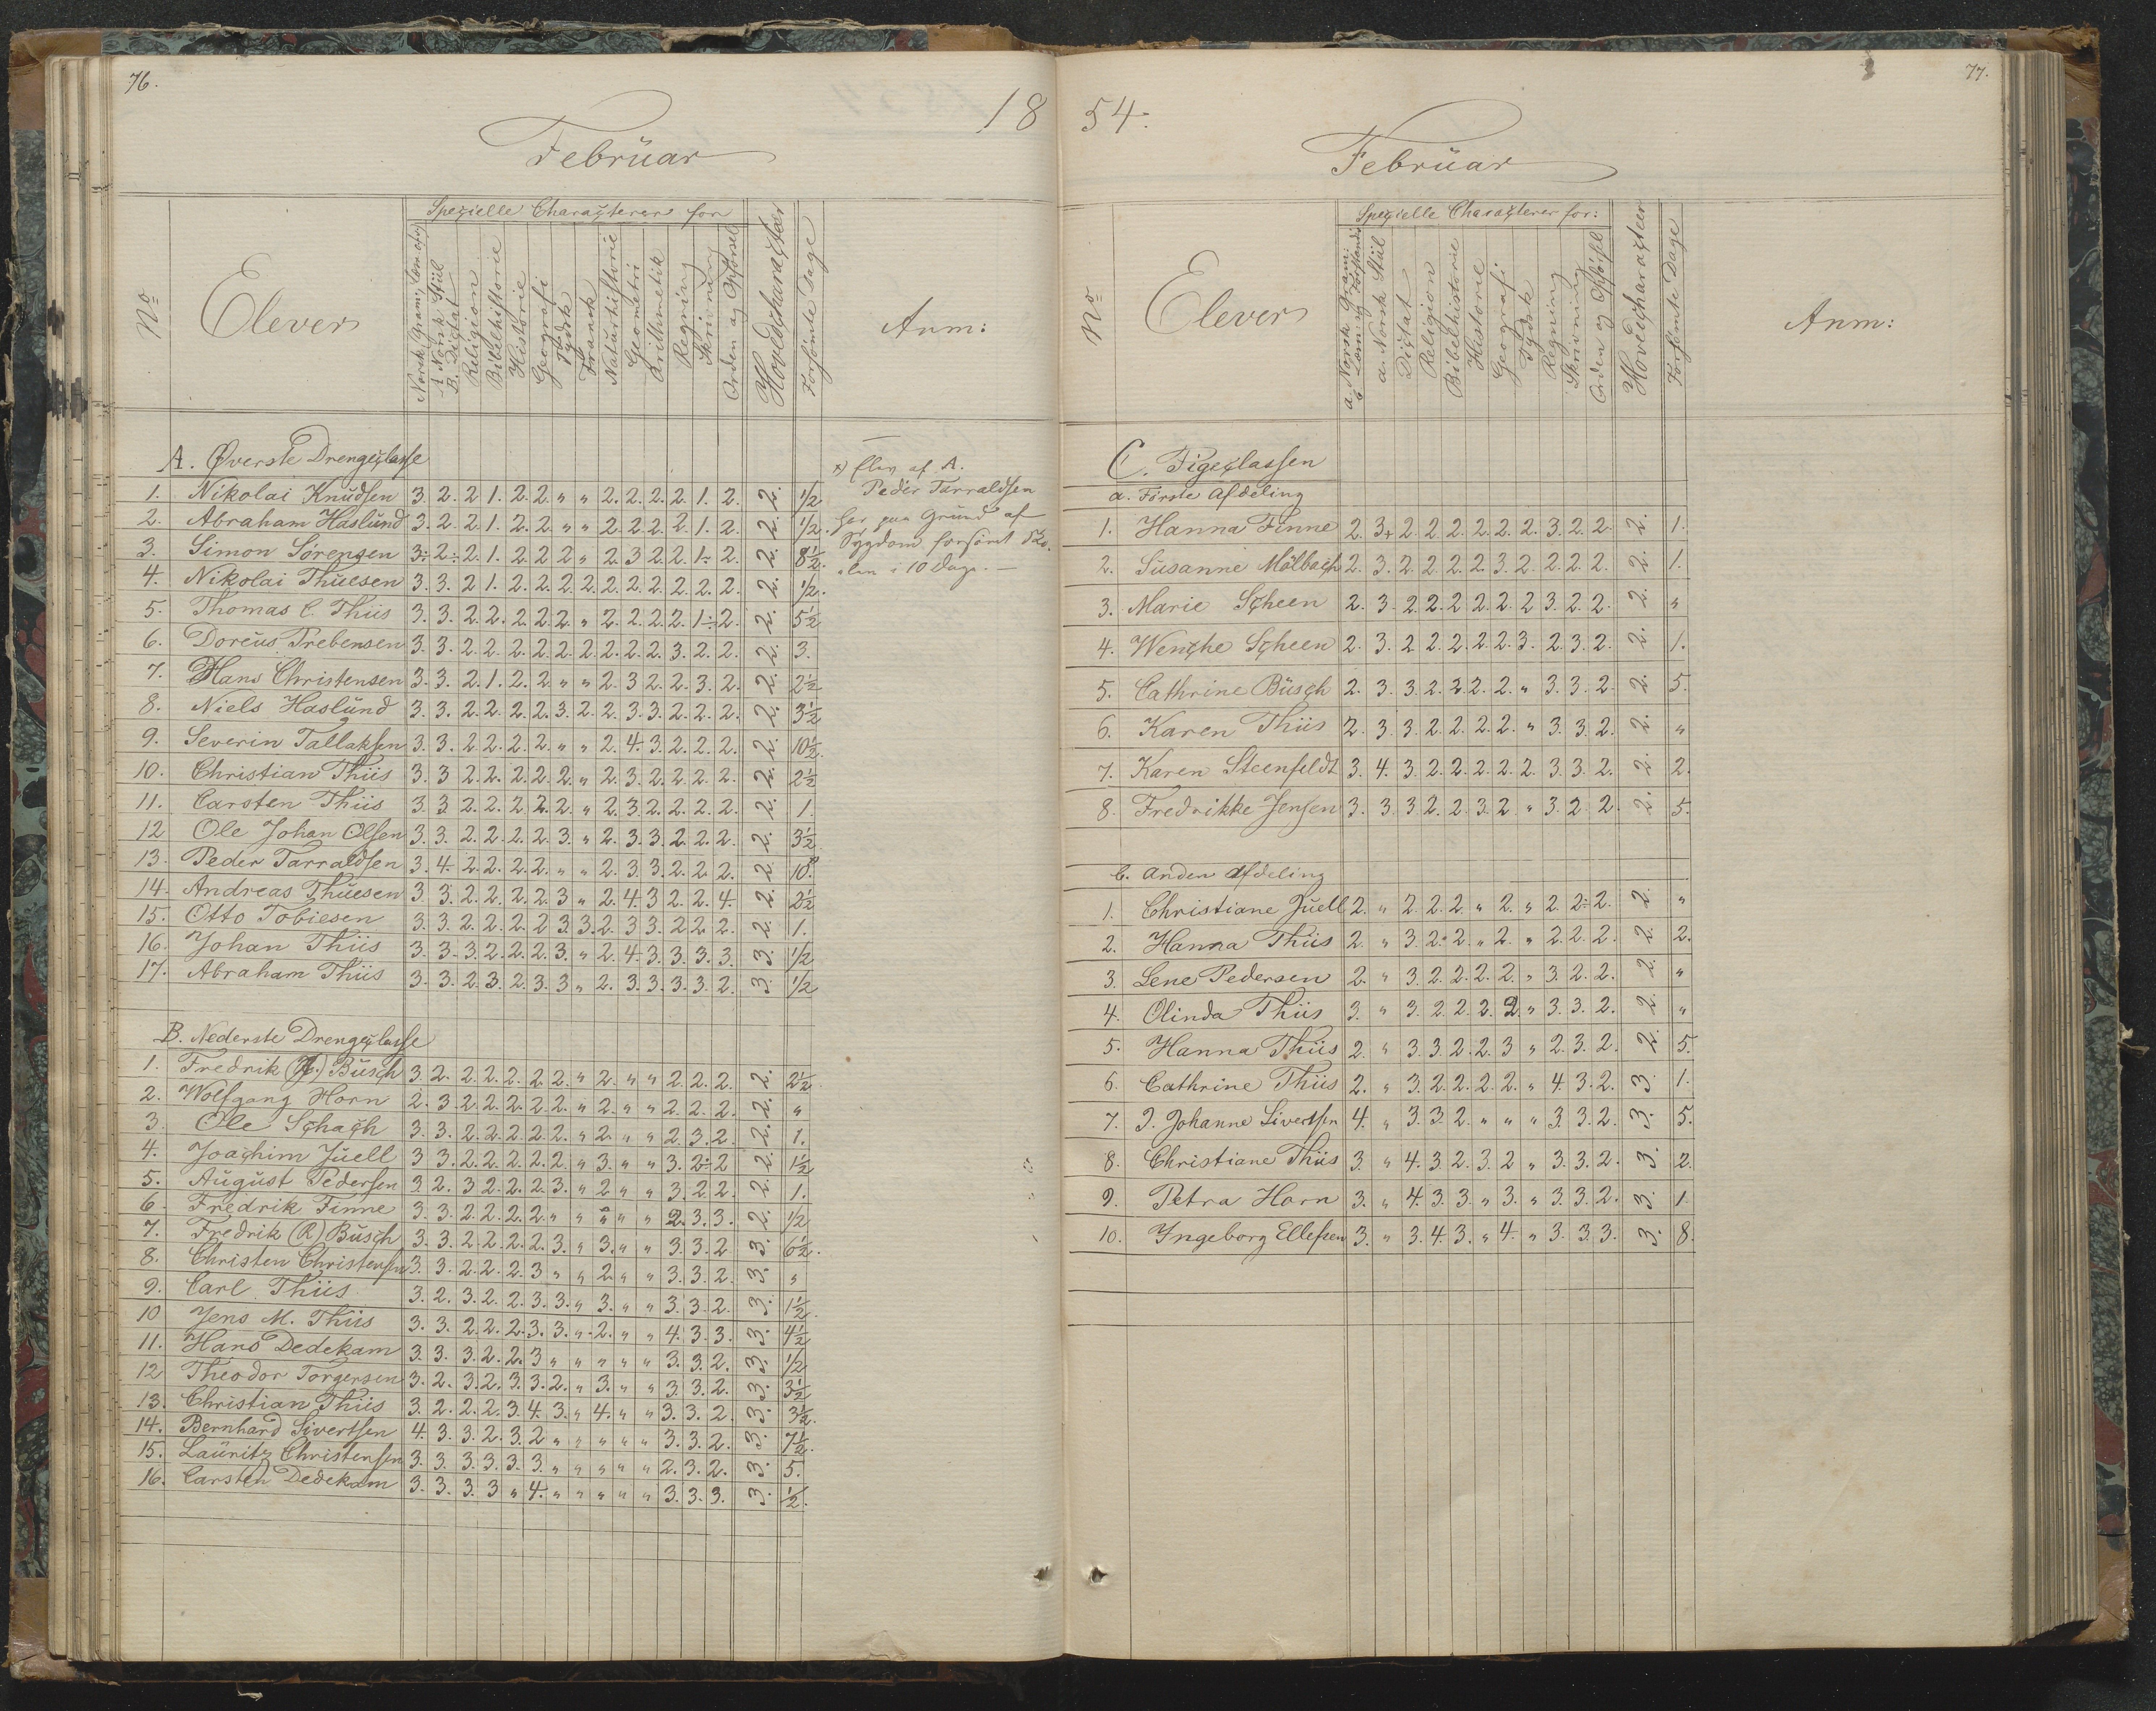 76.
18
Februar
Spezielle Characterer for
No
Elever
Norsk Gram., Læsn. ofv
A Norsk Stiil
B. Dictat
Religion
Bibelhistorie
Historie
Geografi
Tydsk
Fransk
Naturhistorie
Geometri
Arithmetik
Regning
Skrivning
Orden og Opførsel
Hovedcharacter
Forsømte Dage
Anm:
A. Øverste Drengeclasse
1. Nikolai Knudsen 3. 2. 2 1. 2. 2. " " 2. 2. 2. 2 1. 2. 2. 1/2
2. Abraham Haslund 3. 2. 2. 1. 2. 2 " " 2. 2. 2. 2. 1. 2. 2. 1/2.
3. Simon Sörensen 3÷ 2÷ 2. 1. 2. 2 2 " 2. 3 2. 2 1÷ 2. 2. 8 1/2.
4. Nikolai Thuesen 3. 3. 2 1. 2. 2. 2. 2. 2. 2. 2. 2. 2. 2. 2. 1/2.
5. Thomas C. Thiis 3. 3. 2. 2. 2. 2. 2. " 2. 2. 2. 2. 1÷ 2. 2. 5 1/2
6. Doreus Prebensen 3. 3. 2. 2. 2. 2. 2. 2. 2. 2. 2. 3. 2. 2. 2. 3.
7. Hans Christensen 3. 3. 2. 1. 2. 2 " " 2. 3 2. 2. 3. 2. 2. 2 1/2
8. Niels Haslund 3. 3. 2. 2. 2. 2. 3. 2. 2. 3. 3. 2. 2. 2. 2. 3 1/2
9. Severin Tallaksen 3. 3. 2. 2. 2. 2. " " 2. 4. 3. 2. 2. 2. 2. 10 1/2.
10. Christian Thiis 3. 3 2. 2. 2. 2. 2. " 2. 3. 2. 2. 2. 2. 2. 2 1/2
11. Carsten Thiis 3. 3 2. 2. 2 2. 2. " 2. 3. 2. 2. 2. 2. 2. 1.
12 Ole Johan Olsen 3. 3. 2. 2. 2. 2. 3. " 2. 3. 3. 2. 2. 2. 2. 3 1/2
13. Peder Tarraldsen 3. 4. 2. 2. 2. 2. " " 2. 3. 3. 2. 2. 2. 2. 10.
14. Andreas Thuesen 3 3. 2. 2. 2. 2. 3 " 2. 4. 3 2. 2. 4. 2. 2 1/2
15. Otto Tobiesen 3. 3. 2. 2. 2. 2 3. 3. 2. 3 3. 2 2 2. 2. 1.
16. Johan Thiis 3. 3. 3. 2. 2. 2. 3. " 2. 4. 3. 3. 3. 3. 3. 1/2
17. Abraham Thiis 3. 3. 2. 3. 2. 3. 3 " 2. 3. 3. 3. 3. 2. 3. 1/2
x) Elev af A.
Peder Tarraldsen
har paa Grund af
Sygdom forsömt Sko-
len i 10 Dage. —
B. Nederste Drengeclasse
1. Fredrik Busch 3. 2. 2. 2. 2. 2. 2. " 2. " " 2. 2. 2. 2. 2 1/2.
2. Wolfgang Horn 2. 3. 2. 2. 2. 2. 2. " 2. " " 2. 2. 2. 2. "
3. Ole Schach 3. 3. 2. 2. 2. 2. 2. " 2. " " 2. 3. 2. 2. 1.
4. Joachim Juell 3 3. 2. 2. 2. 2. 2. " 3. " " 3. 2÷ 2 2. 1 1/2
5. August Pedersen 3. 2. 3 2. 2. 2. 3. " 2 " " 3. 2. 2. 2. 1.
6 Fredrik Finne 3. 3. 2. 2. 2. 2. " " " " " 2. 3. 3. 2. 1/2
7. Fredrik (R) Busch 3. 3. 2. 2. 2. 2. 3. " 3. " " 3. 3. 2 3. 6 1/2.
8. Christen Christensen 3. 3. 2. 2. 2. 3 " " 2. " " 3. 3. 2. 3. "
9. Carl Thiis 3. 2. 3. 2. 2. 3. 3. " 3. " " 3. 3. 2. 3. 1 1/2.
10 Jens M. Thiis 3. 3. 2. 2. 2. 3. 3. " 2. " " 4. 3. 3. 3. 4 1/2
11. Hans Dedekam 3. 3. 3. 2. 2. 3 " " " " " 3. 3. 2. 3. 1/2
12 Theodor Torgersen 3. 2. 3. 2. 3. 3. 2. " 3. " " 3. 3. 2. 3. 3 1/2
13. Christian Thiis 3. 2. 2. 2. 3. 4. 3. " 4. " " 3. 3. 2. 3. 3 1/2.
14. Bernhard Sivertsen 4. 3. 3. 2. 3. 2 " " " " " 3. 3. 2. 3. 7 1/2.
15. Lauritz Christensen 3. 3. 3. 3. 3. 3. " " " " " 2. 3. 2. 3. 5.
16. Carsten Dedekam 3. 3. 3. 3 " 4. " " " " " 3. 3. 3. 3. 1/2.
77.
54.
Februar
Spezielle Characterer for:
No
Elever
a. Norsk Gram:
b Læsn og Forstands
a. Norsk Stiil
Dictat
Religion
Bibelhistorie
Historie
Geografi
Tydsk
Regning
Skrivning
Orden og Opførsel
Hovedcharacteer
Forsømte Dage
Anm:
C. Pigeclassen
a. Förste Afdeling
1. Hanna Finne 2. 3+ 2 2. 2. 2. 2. 2. 3. 2. 2. 2. 1.
2. Susanne Mölbach 2. 3. 2. 2. 2. 2. 3. 2. 2. 2. 2. 2. 1.
3. Marie Scheen 2. 3. 2. 2. 2. 2. 2. 2 3. 2. 2. 2. "
4. Wenche Scheen 2. 3. 2. 2. 2. 2. 2. 3. 2. 3. 2. 2. 1.
5. Cathrine Busch 2. 3. 3. 2. 2. 2. 2. " 3. 3. 2. 2. 5.
6. Karen Thiis 2. 3. 3. 2. 2. 2. 2. " 3. 3. 2. 2. "
7. Karen Steenfeldt 3. 4. 3. 2. 2. 2. 2. 2. 3. 3. 2. 2. 2.
8. Fredrikke Jensen 3. 3 3. 2. 2. 3. 2. " 3. 2. 2. 2. 5.
b. Anden Afdeling
1. Christiane Juell 2. " 2. 2. 2. " 2. " 2. 2÷ 2. 2. "
2. Hanna Thiis 2. " 3. 2. 2. " 2. " 2. 2. 2. 2. 2.
3. Lene Pedersen 2. " 3. 2. 2. 2. 2. " 3. 2. 2. 2. "
4. Olinda Thiis 3. " 3. 2. 2. 2. 2. " 3. 3. 2. 2. "
5. Hanna Thiis 2. " 3. 3. 2. 2. 3 " 2. 3. 2. 2. 5.
6. Cathrine Thiis 2. " 3. 2. 2. 2. 2. " 4. 3. 2. 3. 1.
7. J. Johanne Sivertsen 4. " 3. 3. 2. " " " 3. 3. 2. 3. 5.
8. Christiane Thiis 3. " 4. 3. 2. 3. 2 " 3. 3. 2. 3. 2.
9. Petra Horn 3. " 4. 3. 3. " 3. " 3. 3. 2. 3. 1
10. Ingeborg Ellefsen 3. " 3. 4. 3. " 4. " 3. 3. 3. 3. 8.